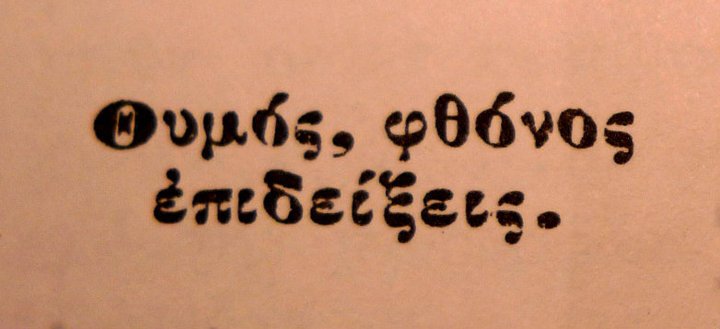 Θυμός, φθόνος
ἐπιδείξεις.